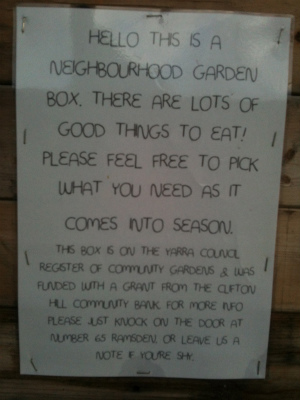 HELLO THIS IS A
NEIGHBOURHOOD GARDEN
BOX. THERE ARE LOTS OF
GOOD THINGS TO EAT!
PLEASE FEEL FREE TO PICK
WHAT YOU NEED AS IT
COMES INTO SEASON.
THIS BOX IS ON THE YARRA COUNCIL
REGISTER OF COMMUNITY GARDENS & WAS
FUNDED WITH A GRANT FROM THE CLIFTON
HILL COMMUNITY BANK. FOR MORE INFO
PLEASE JUST KNOCK ON THE DOOR AT
NUMBER 65 RAMSDEN, OR LEAVE US A
NOTE IF YOU'RE SHY.